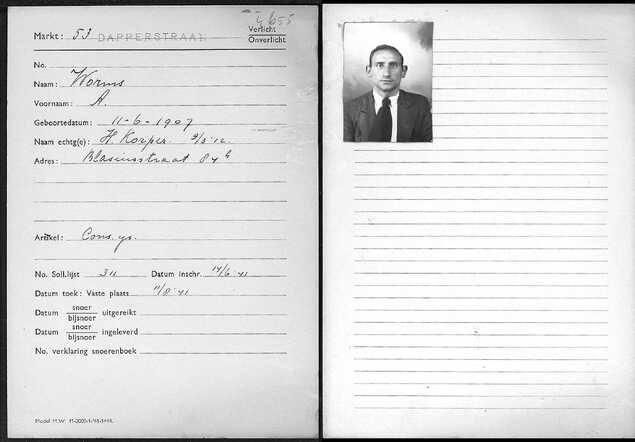 655
Markt: 53 DAPPERSTRAAT
Verlicht
Onverlicht
No.
Naam: Worms
Voornaam: A.
Geboortedatum: 11-6-1907
Naam echtg(e): H. Korper 9/3 '12
Adres: Blasiusstraat 84 h
Artikel: Cons. ijs.
No. Soll.lijst 311 Datum inschr. 14/6 '41
Datum toek: Vaste plaats 11/8 '41
Datum snoer uitgereikt
bijsnoer
Datum snoer ingeleverd
bijsnoer
No. verklaring snoerenboek
Model M.W.